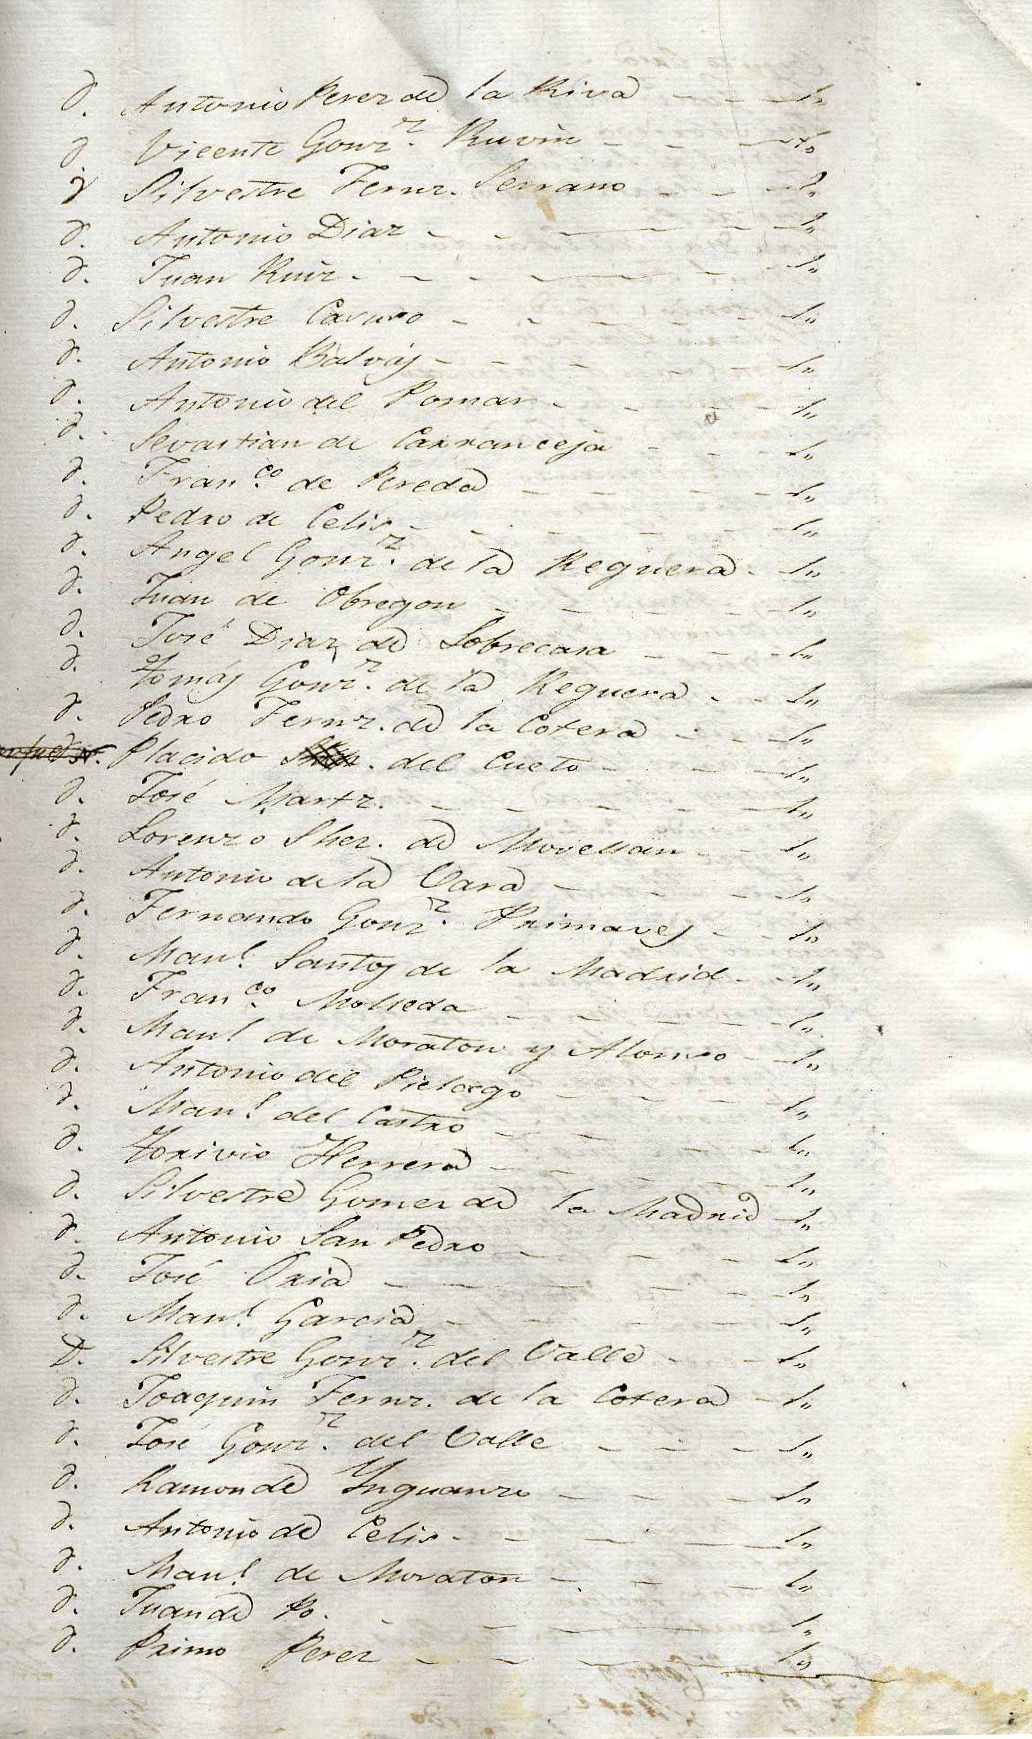 D. Antonio Perez de la Riva - - - 1„
D. Vicente Gonz.z Ruvin - - - 1„
D. Silvestre Fernz. Serrano - - - 1„
D. Antonio Diaz - - - 1„
D. Juan Ruiz - - - 1„
D. Silvestre - - - 1„
D. Antonio Balvás - - - 1„
D. Antonio del Pomar - - - 1„
D. Sevastian de Carranceja - - - 1„
D. Fran.co de Pereda - - - 1„
D. Pedro de Celis - - - 1„
D. Angel Gonz.z de la Reguera - 1„
D. Juan de Obregon - - - 1„
D. José Diaz de Sobrecasa - - - 1„
D. Tomás Gonz.z de la Reguera - - 1„
D. Pedro Fernz. de la Cotera - - - 1„
Placido del Cueto - - - 1„
D. José Martz. - - - 1„
D. Lorenzo Shez. de Movellan - - 1„
D. Antonio de la Vara - - - 1„
D. Fernando Gonz.z Primaves - - 1„
D. Man.l Santos de la Madrid - - 1„
D. Fran.co Molleda - - - 1„
D. Man.l de Moraton y Alonso - - 1„
D. Antonio del Pielargo - - - 1„
D. Man.l del Castro - - - 1„
D. Torivio Herrera - - - 1„
D. Silvestre Gomez de la Madrid - 1„
D. Antonio San Pedro - - - 1„
D. José Oria - - - 1„
D. Man.l Garcia - - - 1„
D. Silvestre Gonz.z del Valle - - - 1„
D. Joaquin Fernz. de la Cotera - 1„
D. José Gonz.z del Valle - - - 1„
D. Ramon de Ynguanzo - - - 1„
D. Antonio de Celis - - - 1„
D. Man.l de Moraton - - - 1„
D. Juan de Po. - - - 1„
D. Primo Perez - - - 1„